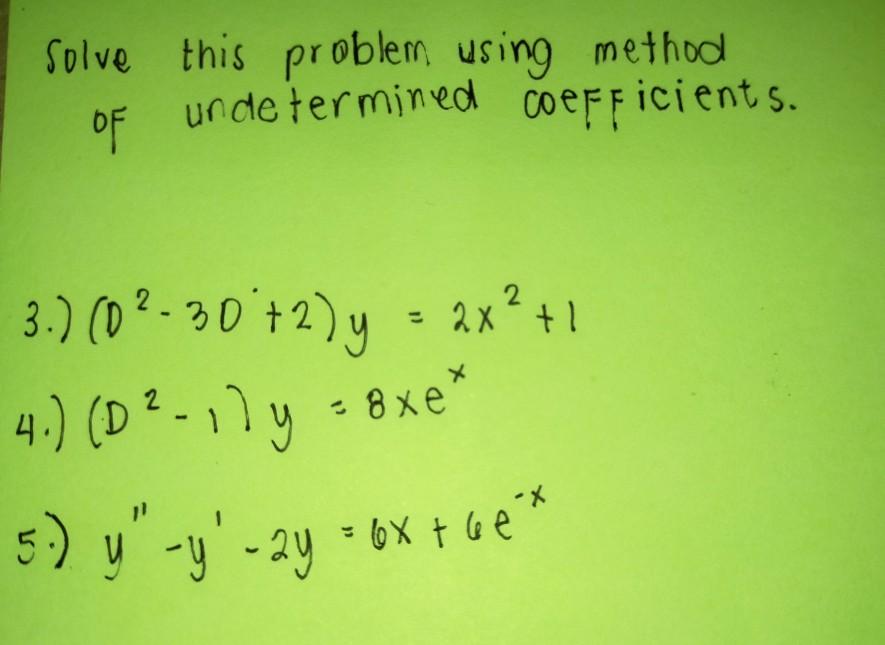 Solve this problem using method
of undetermined coefficients.
3.) (D² - 3D + 2) y = 2x² + 1
4.) (D² - 1) y = 8xeˣ
5.) y" - y' - 2y = 6x + 6e⁻ˣ